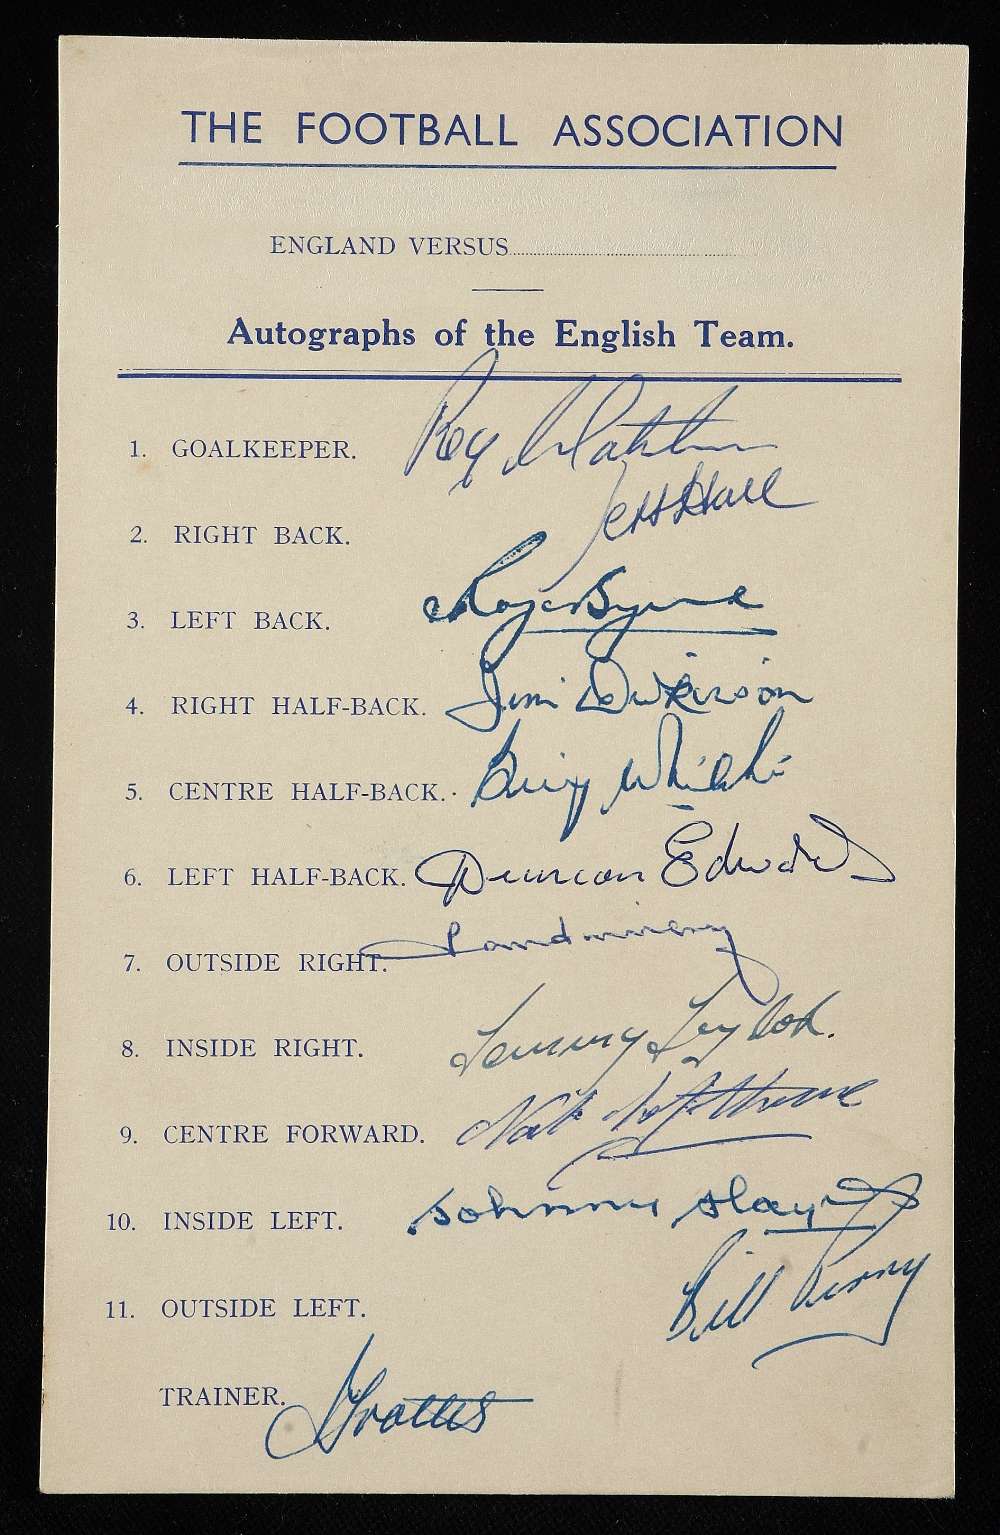 THE FOOTBALL ASSOCIATION
ENGLAND VERSUS
Autographs of the English Team.
1. GOALKEEPER. Reg Matthews
2. RIGHT BACK. Jeff Hall
3. LEFT BACK. Roger Byrne
4. RIGHT HALF-BACK. Jim Dickinson
5. CENTRE HALF-BACK. Billy Wright
6. LEFT HALF-BACK. Duncan Edwards
7. OUTSIDE RIGHT.
8. INSIDE RIGHT. Tommy Taylor.
9. CENTRE FORWARD. Nat Lofthouse
10. INSIDE LEFT. Johnny Haynes
11. OUTSIDE LEFT. Bill Perry
TRAINER.